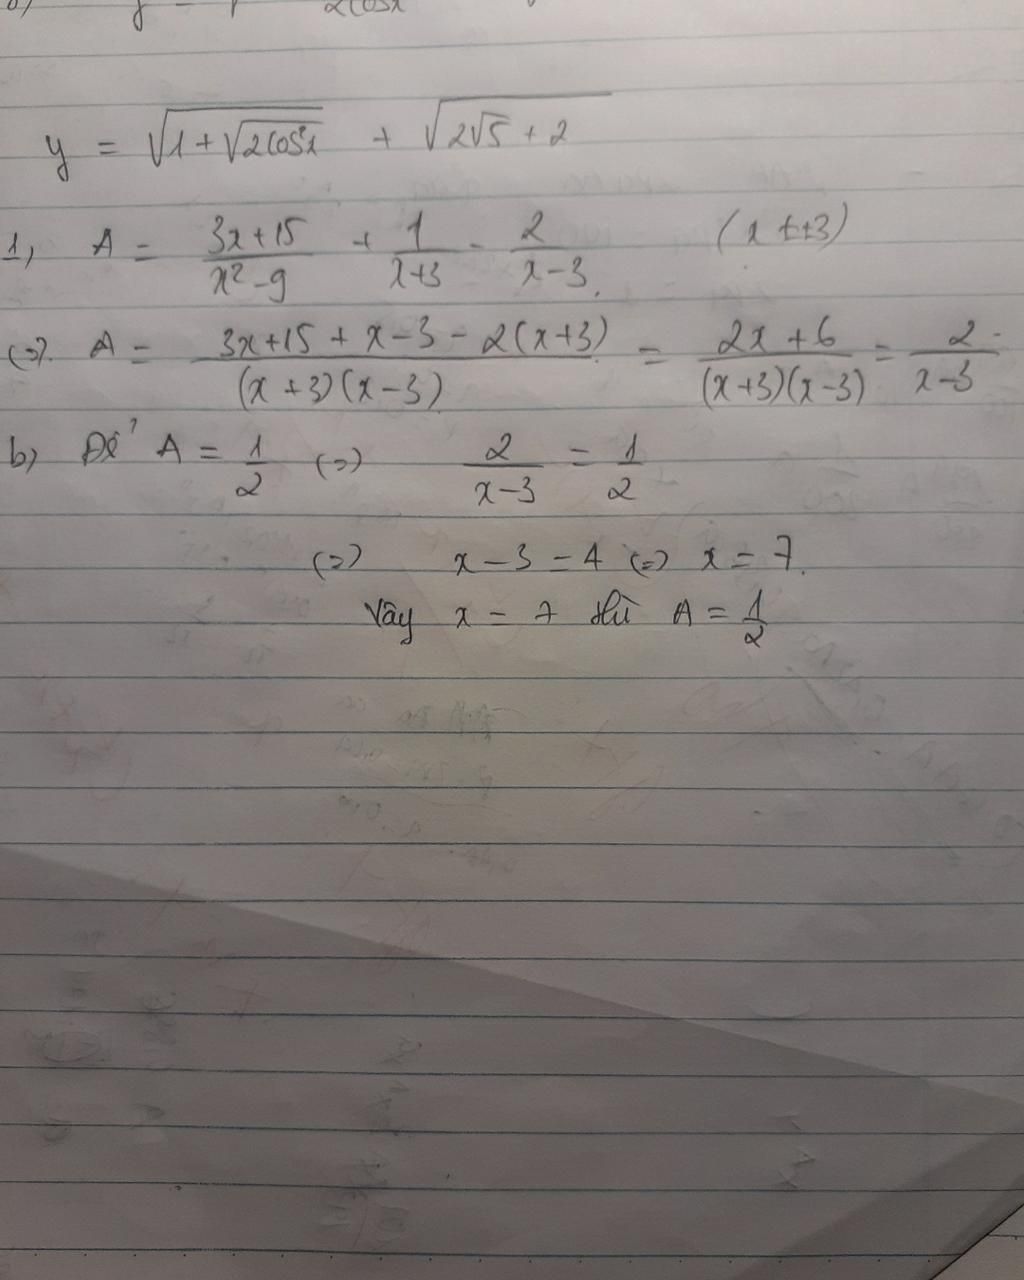 y = √(1+√(2cos²x)) + √(2√5 + 2)
1, A = (3x+15)/(x²-9) + 1/(x+3) - 2/(x-3) (x ≠ ±3)
(=) A = (3x+15 + x-3 - 2(x+3))/((x+3)(x-3)) = (2x+6)/((x+3)(x-3)) = 2/(x-3)
b) Để A = 1/2 (=) 2/(x-3) = 1/2
(=) x-3 = 4 (=) x = 7.
Vậy x = 7 thì A = 1/2